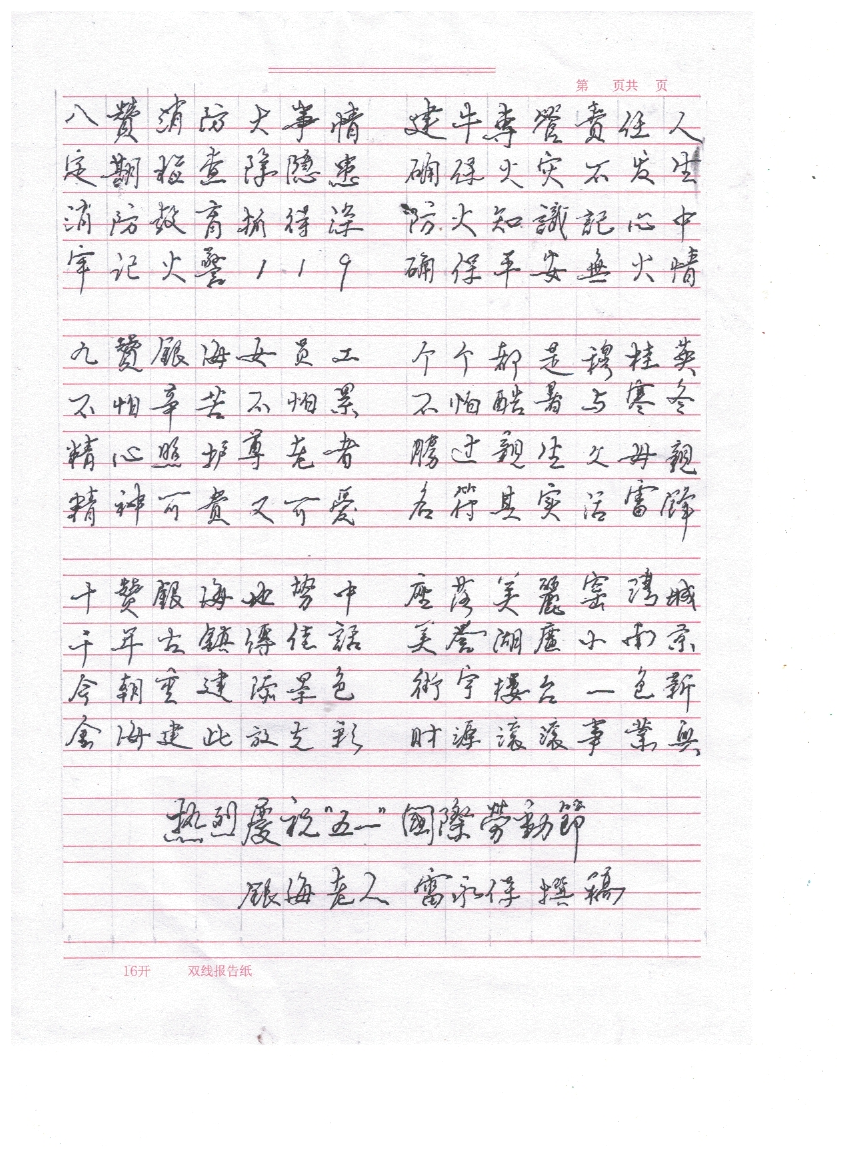 第 页共 页
八贊消防大事情 建牛專管責任人
定期檢查除隱患 确保火灾不发生
消防教育抓得深 防火知識記心中
牢记火警119 确保平安無火情
九贊銀海女员工 个个都是穆桂英
不怕辛苦不怕累 不怕酷暑与寒冬
精心照护尊老者 勝过親生父母親
精神可貴又可愛 名符其实活雷鋒
十贊銀海地势中 座落美麗窑湾城
千年古鎮傳佳話 美誉湖廣小南京
今朝重建添景色 街宇樓台一色新
金海建此放光彩 财源滚滚事業興
热烈慶祝"五一"國際勞動節
銀海老人 雷永保 撰稿
16开 双线报告纸